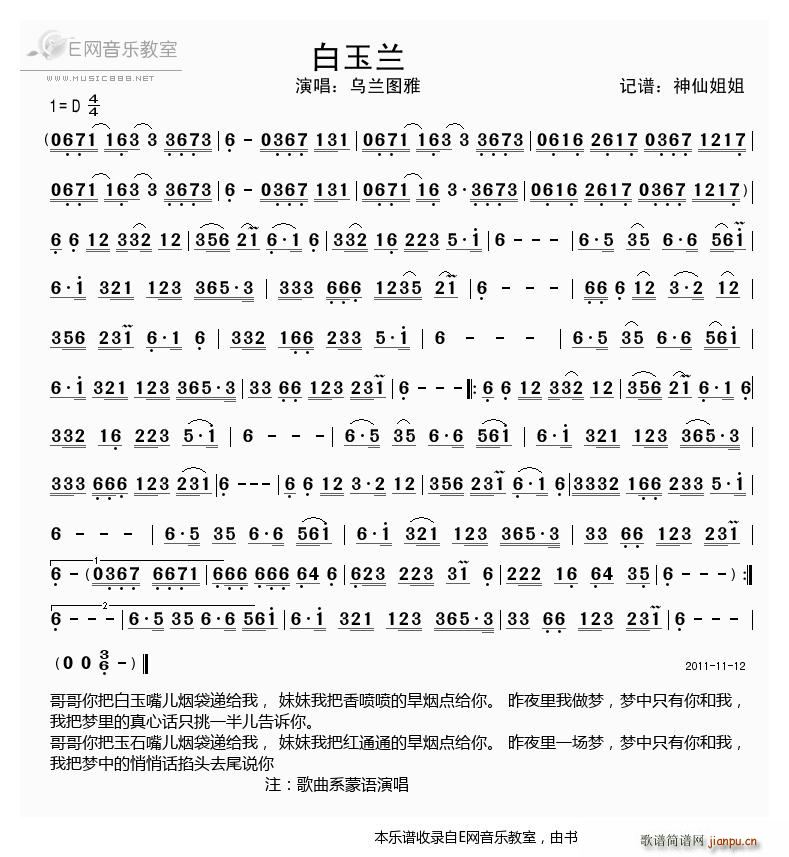 E网音乐教室
WWW.MUSIC888.NET
白玉兰
演唱：乌兰图雅
记谱：神仙姐姐
1=D 4/4
(0671 163 3 3673 | 6 - 0367 131 | 0671 163 3 3673 | 0616 2617 0367 1217 |
0671 163 3 3673 | 6 - 0367 131 | 0671 16 3·3673 | 0616 2617 0367 1217) |
6 6 12 332 12 | 356 21 6·1 6 | 332 16 223 5·1 | 6 - - - | 6·5 35 6·6 561 |
6·1 321 123 365·3 | 333 666 1235 21 | 6 - - - | 66 6 12 3·2 12 |
356 231 6·1 6 | 332 166 233 5·1 | 6 - - - | 6·5 35 6·6 561 |
6·1 321 123 365·3 | 33 66 123 231 | 6 - - - ‖: 6 6 12 332 12 | 356 21 6·1 6 |
332 16 223 5·1 | 6 - - - | 6·5 35 6·6 561 | 6·1 321 123 365·3 |
333 666 123 231 | 6 - - - | 6 6 12 3·2 12 | 356 231 6·1 6 | 3332 166 233 5·1 |
6 - - - | 6·5 35 6·6 561 | 6·1 321 123 365·3 | 33 66 123 231 |
1
6 - (0367 6671 | 666 666 64 6 | 623 223 31 6 | 222 16 64 35 | 6 - - -) :‖
2
6 - - - | 6·5 35 6·6 561 | 6·1 321 123 365·3 | 33 66 123 231 | 6 - - - |
(0 0 3/6 -) ‖
2011-11-12
哥哥你把白玉嘴儿烟袋递给我， 妹妹我把香喷喷的旱烟点给你。 昨夜里我做梦，梦中只有你和我，
我把梦里的真心话只挑一半儿告诉你。
哥哥你把玉石嘴儿烟袋递给我， 妹妹我把红通通的旱烟点给你。 昨夜里一场梦，梦中只有你和我，
我把梦中的悄悄话掐头去尾说你
注：歌曲系蒙语演唱
本乐谱收录自E网音乐教室，由书
歌谱简谱网 jianpu.cn